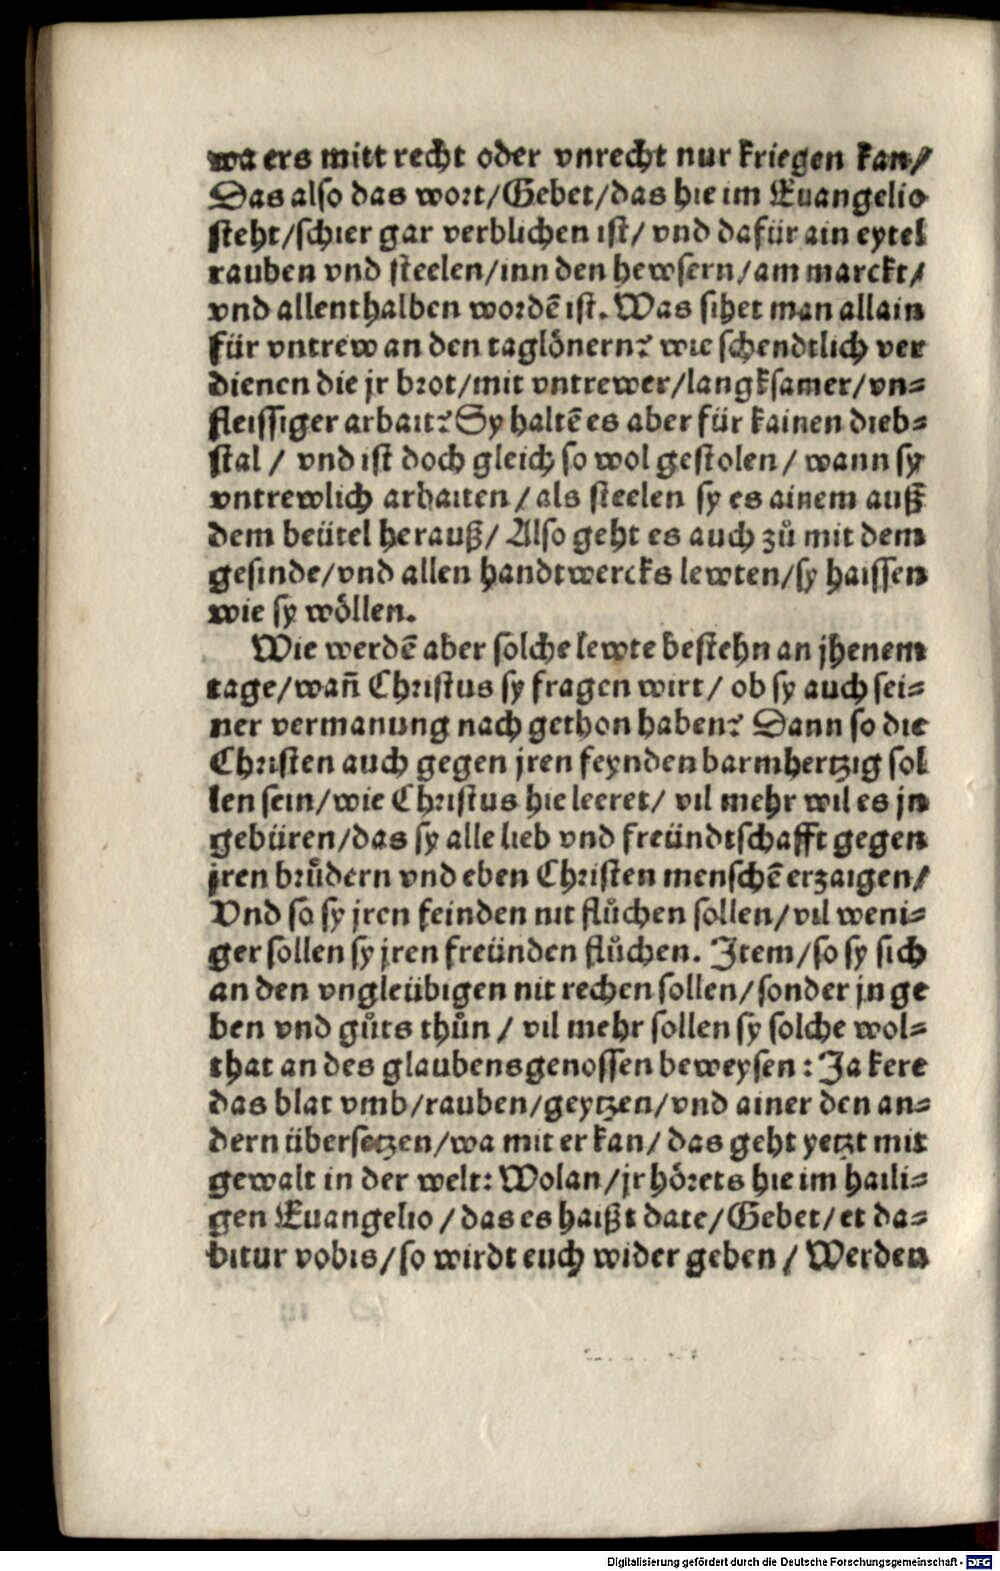 wa ers mitt recht oder vnrecht nur kriegen kan/
Das also das wort/Gebet/das hie im Euangelio
steht/schier gar verblichen ist/ vnd dafür ain eytel
rauben vnd steelen/inn den hewsern/am marckt/
vnd allenthalben wordē ist. Was sihet man allain
für vntrew an den taglönern? wie schendtlich ver
dienen die jr brot/mit vntrewer/langksamer/vn-
fleissiger arbait? Sy haltē es aber für kainen dieb-
stal / vnd ist doch gleich so wol gestolen / wann sy
vntrewlich arbaiten / als steelen sy es ainem auß
dem beütel herauß/ Also geht es auch zů mit dem
gesinde/vnd allen handtwercks lewten/sy haissen
wie sy wöllen.
Wie werdē aber solche lewte bestehn an jhenem
tage/wañ Christus sy fragen wirt/ ob sy auch sei-
ner vermanung nach gethon haben? Dann so die
Christen auch gegen jren feynden barmhertzig sol
len sein/wie Christus hie leeret/ vil mehr wil es jn
gebüren/das sy alle lieb vnd freündtschafft gegen
jren brůdern vnd eben Christen menschē erzaigen/
Vnd so sy jren feinden nit flůchen sollen/vil weni-
ger sollen sy jren freünden flůchen. Item/so sy sich
an den vngleübigen nit rechen sollen/sonder jn ge
ben vnd gůts thůn / vil mehr sollen sy solche wol-
that an des glaubensgenossen beweysen : Ja kere
das blat vmb/rauben/geytzen/vnd ainer den an-
dern übersetzen/wa mit er kan/ das geht yetzt mit
gewalt in der welt: Wolan/jr hörets hie im haili-
gen Euangelio / das es haißt date/Gebet/et da-
bitur vobis/so wirdt euch wider geben / Werden
Digitalisierung gefördert durch die Deutsche Forschungsgemeinschaft - DFG